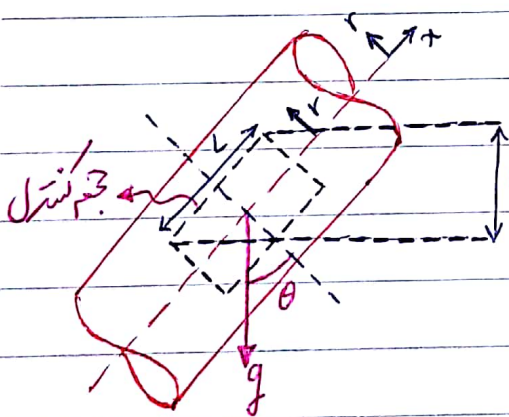 r
+
r
L
حجم کنترل
θ
g